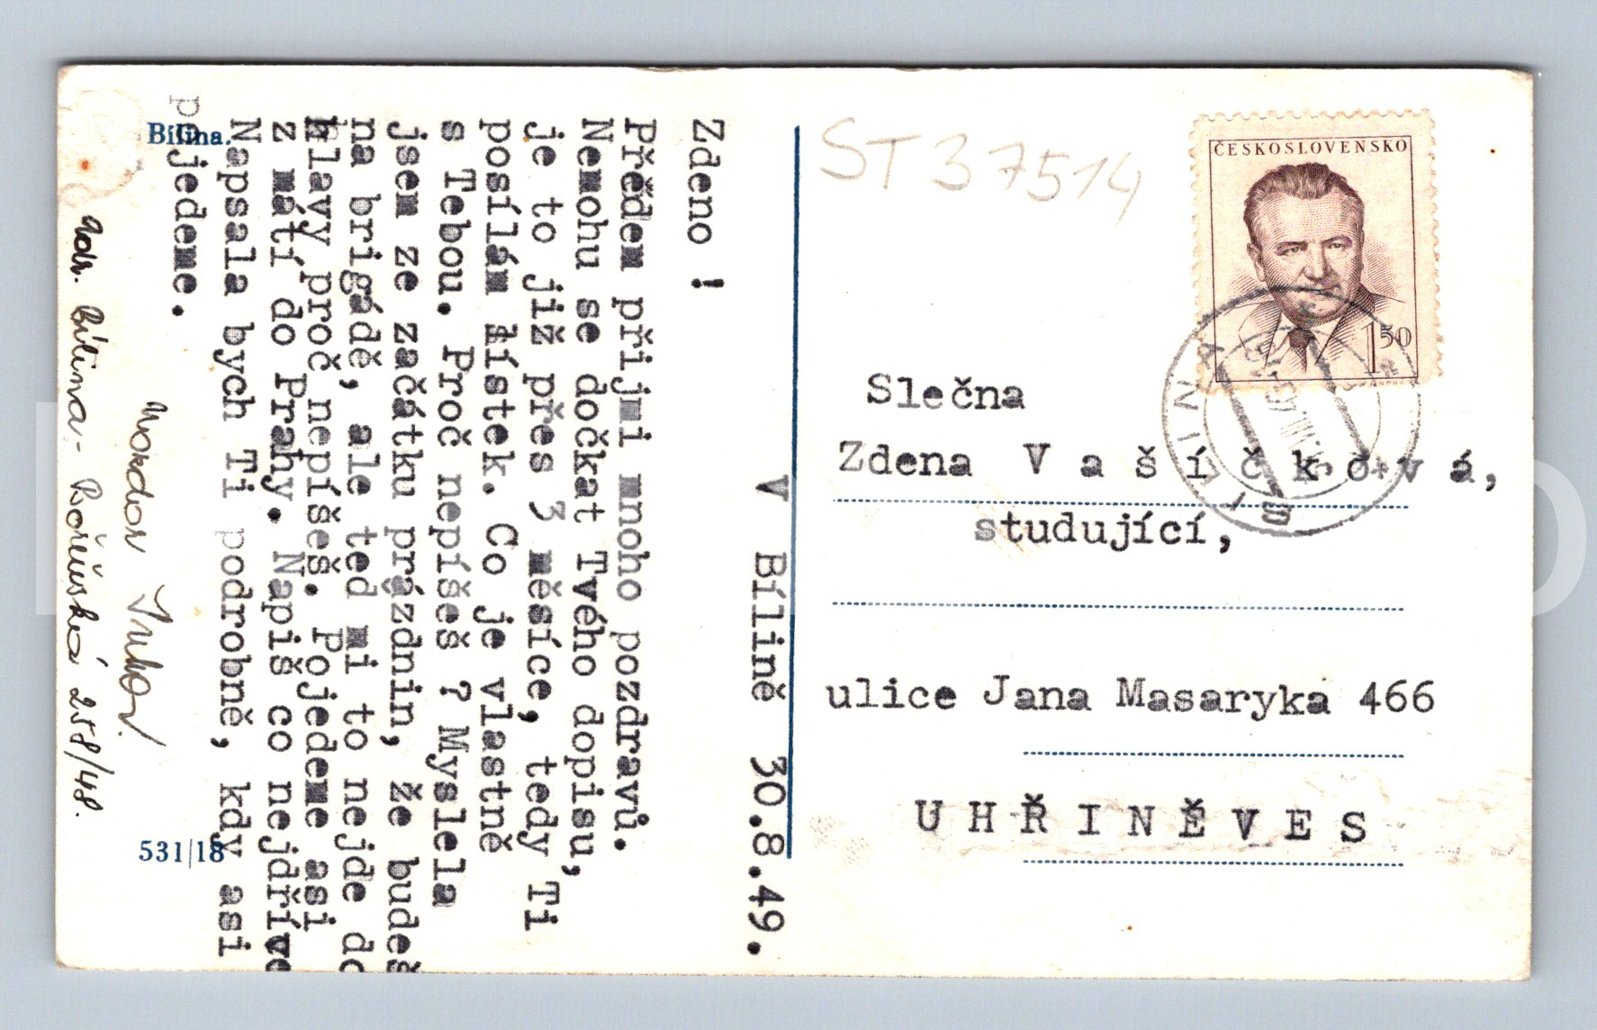 Bílina.
V Bílině 30.8.49.
Zdeno !
Předem přijmi mnoho pozdravů.
Nemohu se dočkat Tvého dopisu,
je to již přes 3 měsíce, tedy Ti
posílám lístek. Co je vlastně
s Tebou. Proč nepíšeš ? Myslela
jsem ze začátku prázdnin, že budeš
na brigádě, ale teď mi to nejde do
hlavy proč nepíšeš. Pojedeme asi
z mátí do Prahy. Napiš co nejdříve
Napsala bych Ti podrobně, kdy asi
pojedeme.
Adr. Bílina - Bořeňská 258/48.
531/18
ST 37514
ČESKOSLOVENSKO
1.50
BÍLINA
Slečna
Zdena V a š í č k o v á,
studující,
ulice Jana Masaryka 466
U H Ř I N Ě V E S